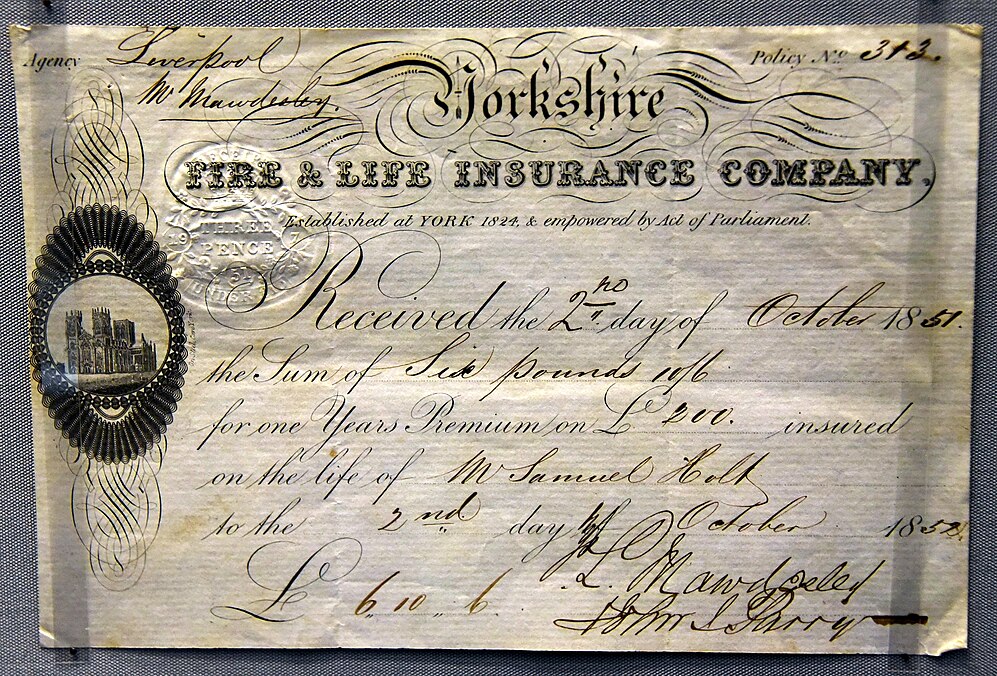 Agency Liverpool
Policy No. 343.
Mr Mawdesley.
Yorkshire
FIRE & LIFE INSURANCE COMPANY,
Established at YORK 1824, & empowered by Act of Parliament.
THREE
PENCE
UNDER
Received the 2nd day of October 1851.
the Sum of Six pounds 10/6
for one Years Premium on £ 200. insured
on the life of Mr Samuel Holt
to the 2nd day of October 1852
£ 6 " 10 " 6
Mawdesley
John S Parry